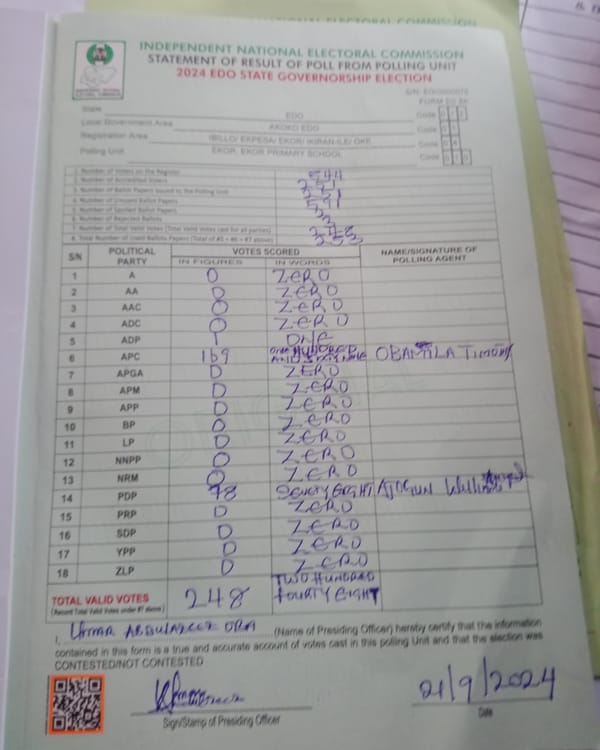 INDEPENDENT NATIONAL ELECTORAL COMMISSION
STATEMENT OF RESULT OF POLL FROM POLLING UNIT
2024 EDO STATE GOVERNORSHIP ELECTION
FORM EC 8A
State EDO Code
Local Government Area AKOKO EDO Code
Registration Area IBILLO/ EKPESA/ EKOR/ IKIRAN-ILE/ OKE Code
Polling Unit EKOR, EKOR PRIMARY SCHOOL Code
1. Number of Voters on the Register 544
2. Number of Accredited Voters 251
3. Number of Ballot Papers Issued to the Polling Unit
4. Number of Unused Ballot Papers
5. Number of Spoiled Ballot Papers
6. Number of Rejected Ballots
7. Number of Total Valid Votes (Total Valid Votes cast for all parties) 248
8. Total Number of Used Ballots Papers (Total of #5 + #6 + #7 above)
S/N POLITICAL PARTY VOTES SCORED NAME/SIGNATURE OF POLLING AGENT
IN FIGURES IN WORDS
1 A 0 ZERO
2 AA 0 ZERO
3 AAC 0 ZERO
4 ADC 0 ZERO
5 ADP 1 ONE
6 APC 169 ONE HUNDRED AND SIXTY NINE
7 APGA 0 ZERO
8 APM 0 ZERO
9 APP 0 ZERO
10 BP 0 ZERO
11 LP 0 ZERO
12 NNPP 0 ZERO
13 NRM 0 ZERO
14 PDP 78
15 PRP 0 ZERO
16 SDP 0 ZERO
17 YPP 0 ZERO
18 ZLP 0 ZERO
TOTAL VALID VOTES 248 TWO HUNDRED FOURTY EIGHT
(Record Total Valid Votes under #7 above)
I, (Name of Presiding Officer) hereby certify that the information
contained in this form is a true and accurate account of votes cast in this polling Unit and that the election was
CONTESTED/NOT CONTESTED
21/9/2024
Sign/Stamp of Presiding Officer Date